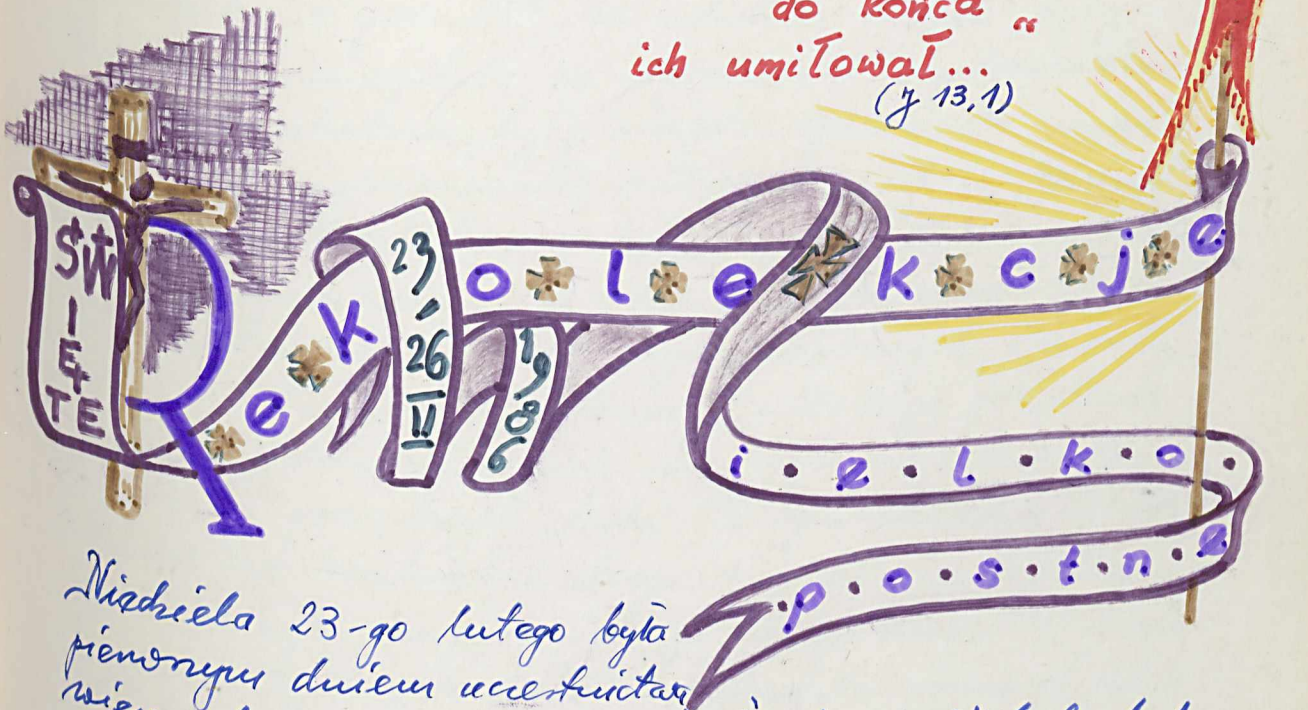 do końca "
ich umiłował...
(J 13,1)
ŚW
IĘ
TE
Rekolekcje
23
-
26
II
1986
ielko
postne
Niedziela 23-go lutego była
pierwszym dniem uczestnictwa